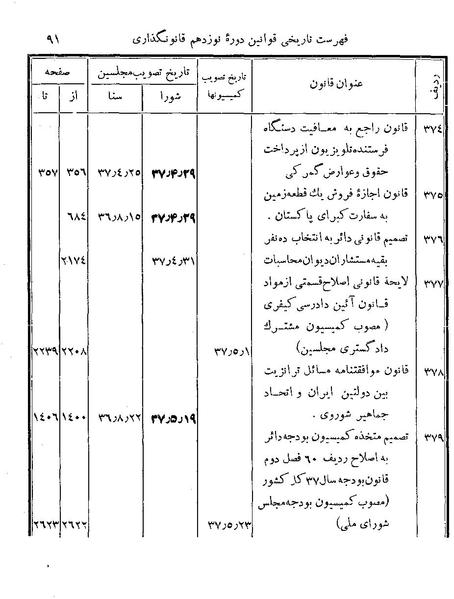 فهرست تاریخی قوانین دورهٔ نوزدهم قانونگذاری ۹۱
ردیف عنوان قانون تاریخ تصویب کمیسیونها تاریخ تصویب مجلسین صفحه
شورا سنا از تا
۳۷۴ قانون راجع به معافیت دستگاه
فرستنده تلویزیون از پرداخت
حقوق و عوارض گمرکی ۳۷٫۴٫۲۹ ۳۷٫۴٫۲۵ ۳۵۶ ۳۵۷
۳۷۵ قانون اجازهٔ فروش یك قطعه زمین
به سفارت کبرای پاکستان . ۳۷٫۴٫۲۹ ۳۶٫۸٫۱۵ ۶۸٤
۳۷۶ تصمیم قانونی دائر به انتخاب ده نفر
بقیه مستشاران دیوان محاسبات ۳۷٫۴٫۳۱ ۲۱۷٤
۳۷۷ لایحهٔ قانونی اصلاح قسمتی از مواد
قانون آئین دادرسی کیفری
(مصوب کمیسیون مشترك
دادگستری مجلسین) ۳۷٫۵٫۱ ۲۲۰۸ ۲۲۳۹
۳۷۸ قانون موافقتنامه مسائل ترانزیت
بین دولتین ایران و اتحاد
جماهیر شوروی . ۳۷٫۵٫۱۹ ۳۶٫۸٫۲۲ ۱٤۰۰ ۱٤۰۶
۳۷۹ تصمیم متخذه کمیسیون بودجه دائر
به اصلاح ردیف ۶۰ فصل دوم
قانون بودجه سال ۳۷ کل کشور
(مصوب کمیسیون بودجه مجلس
شورای ملی) ۳۷٫۵٫۲۳ ۲۶۲۲ ۲۶۲۳